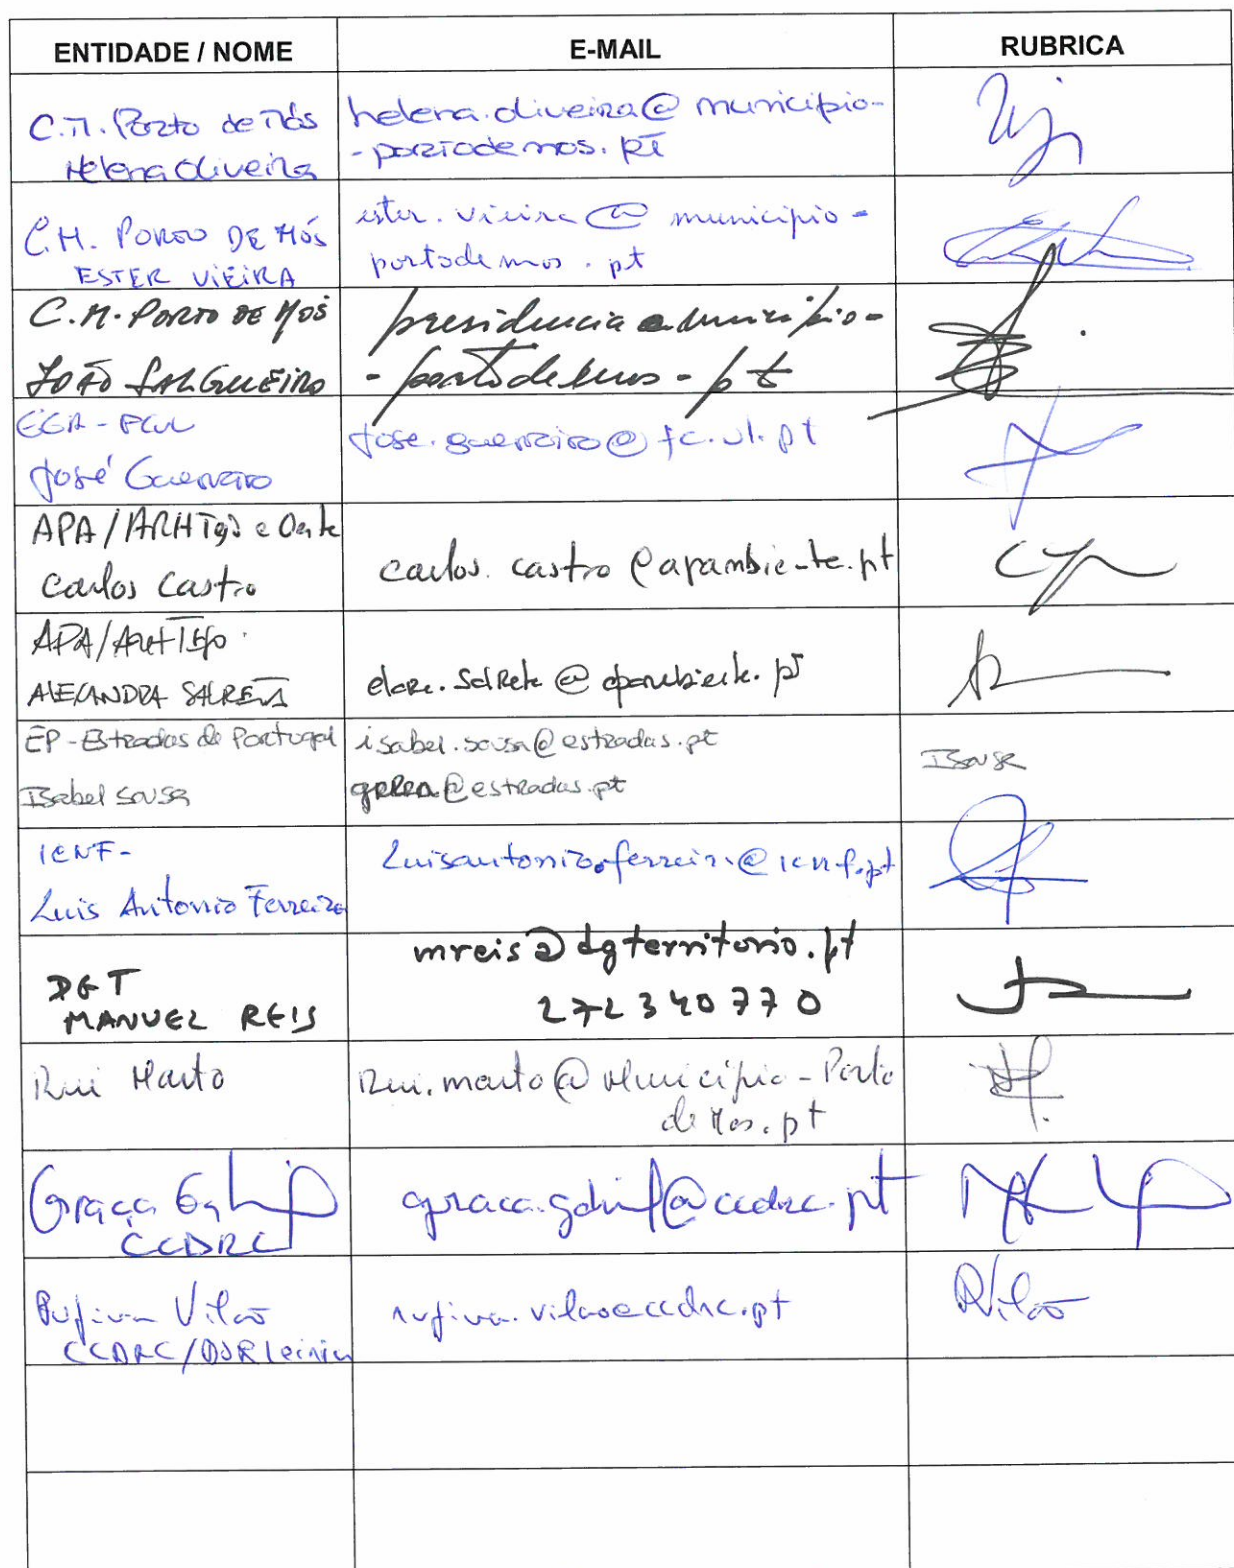 ENTIDADE / NOME
E-MAIL
RUBRICA
C.M. Porto de Mós
Helena Oliveira
helena.oliveira@municipio-
-portodemos.pt
C.M. PORTO DE MÓS
ESTER VIEIRA
ester.vieira@municipio-
portodemos.pt
C.M. PORTO DE MÓS
JOÃO SALGUEIRO
presidencia@municipio-
-portodemos.pt
EGA - FCUL
José Guerreiro
jose.guerreiro@fc.ul.pt
APA/ARHTejo e Oeste
Carlos Castro
carlos.castro@apambiente.pt
APA/ARHTEJO
ALEXANDRA SALRETA
@apambiente.pt
EP-Estradas de Portugal
Isabel Sousa
isabel.sousa@estradas.pt
@estradas.pt
ISousa
ICNF-
Luis Antonio Ferreira
luisantonio.ferreira@icnf.pt
DGT
MANUEL REIS
mreis@dgterritorio.pt
272 340 770
Rui Marto
Rui.marto@Municipio-Porto
de Mos.pt
Graça
CCDRC
@ccdrc.pt
Rufina Vilão
CCDRC/DSR Leiria
rufina.vilao@ccdrc.pt
RVilão